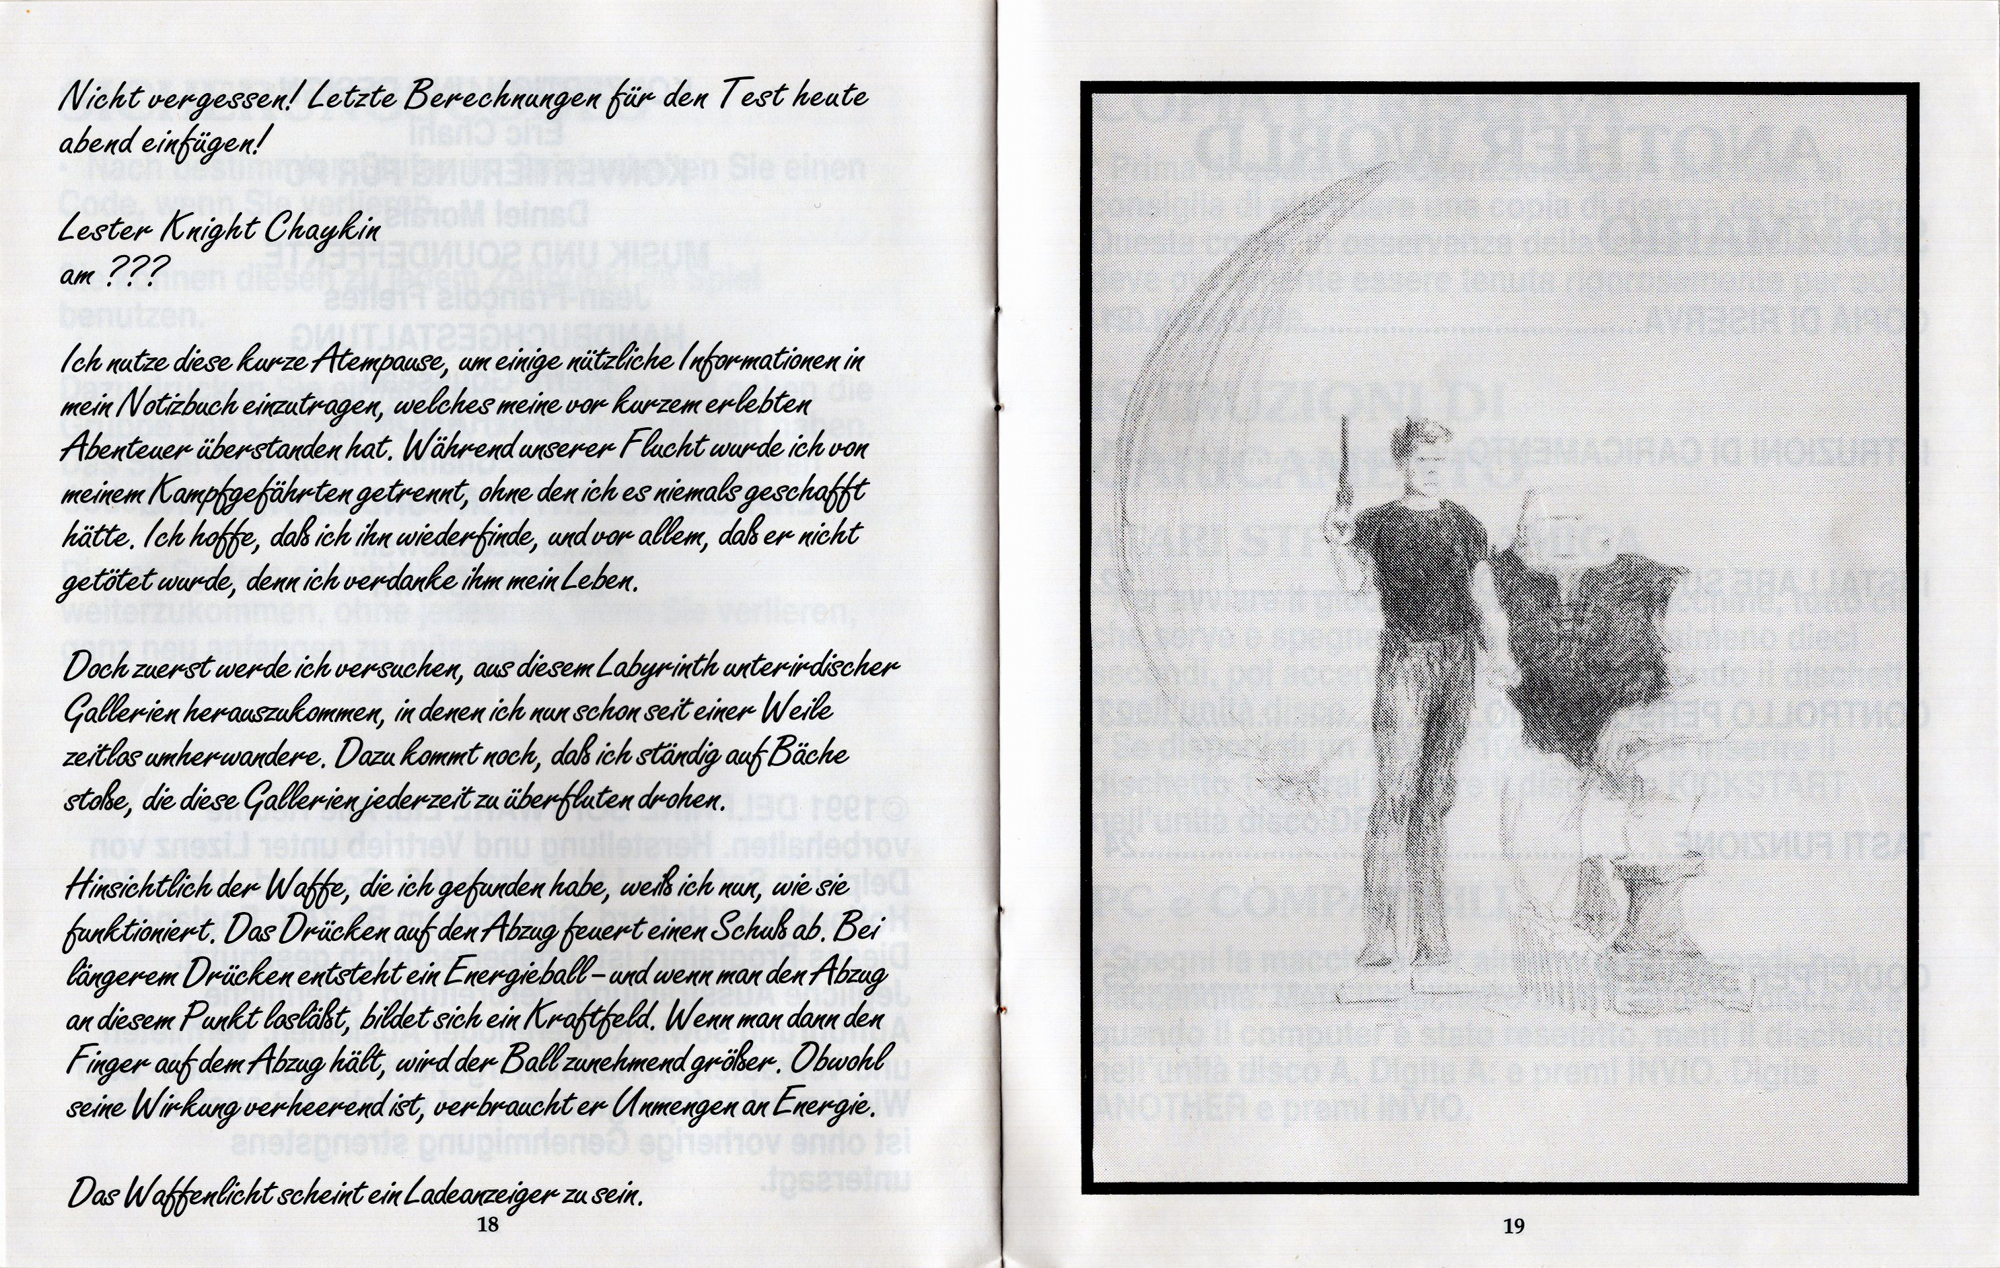 Nicht vergessen! Letzte Berechnungen für den Test heute
abend einfügen!
Lester Knight Chaykin
am ???
Ich nutze diese kurze Atempause, um einige nützliche Informationen in
mein Notizbuch einzutragen, welches meine vor kurzem erlebten
Abenteuer überstanden hat. Während unserer Flucht wurde ich von
meinem Kampfgefährten getrennt, ohne den ich es niemals geschafft
hätte. Ich hoffe, daß ich ihn wiederfinde, und vor allem, daß er nicht
getötet wurde, denn ich verdanke ihm mein Leben.
Doch zuerst werde ich versuchen, aus diesem Labyrinth unterirdischer
Gallerien herauszukommen, in denen ich nun schon seit einer Weile
zeitlos umherwandere. Dazu kommt noch, daß ich ständig auf Bäche
stoße, die diese Gallerien jederzeit zu überfluten drohen.
Hinsichtlich der Waffe, die ich gefunden habe, weiß ich nun, wie sie
funktioniert. Das Drücken auf den Abzug feuert einen Schuß ab. Bei
längerem Drücken entsteht ein Energieball – und wenn man den Abzug
an diesem Punkt losläßt, bildet sich ein Kraftfeld. Wenn man dann den
Finger auf dem Abzug hält, wird der Ball zunehmend größer. Obwohl
seine Wirkung verheerend ist, verbraucht er Unmengen an Energie.
Das Waffenlicht scheint ein Ladeanzeiger zu sein.
18
19